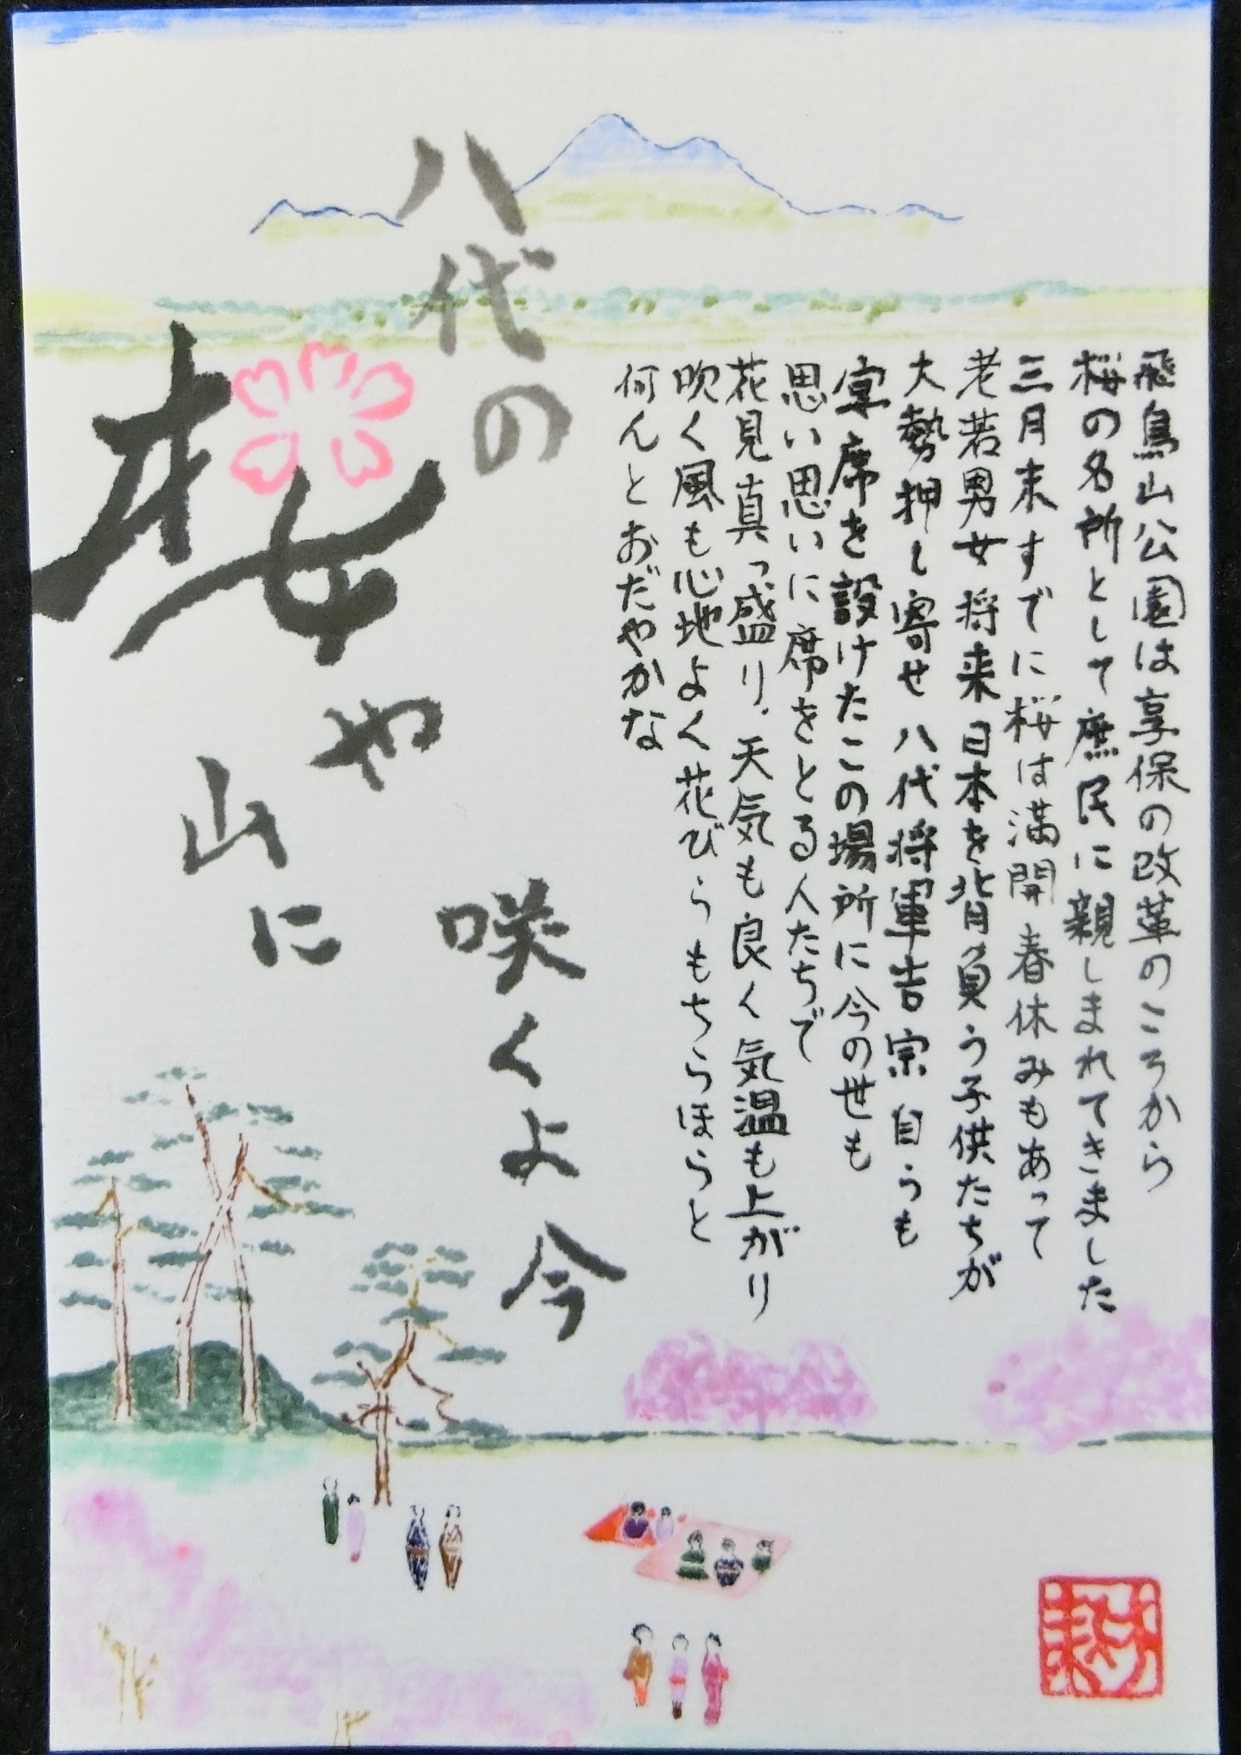 飛鳥山公園は享保の改革のころから
桜の名所として庶民に親しまれてきました
三月末すでに桜は満開春休みもあって
老若男女将来日本を背負う子供たちが
大勢押し寄せ八代将軍吉宗自らも
宴席を設けたこの場所に今の世も
思い思いに席をとる人たちで
花見真っ盛り、天気も良く気温も上がり
吹く風も心地よく花びらもちらほらと
何んとおだやかな
八代の
桜や
山に
咲くよ今